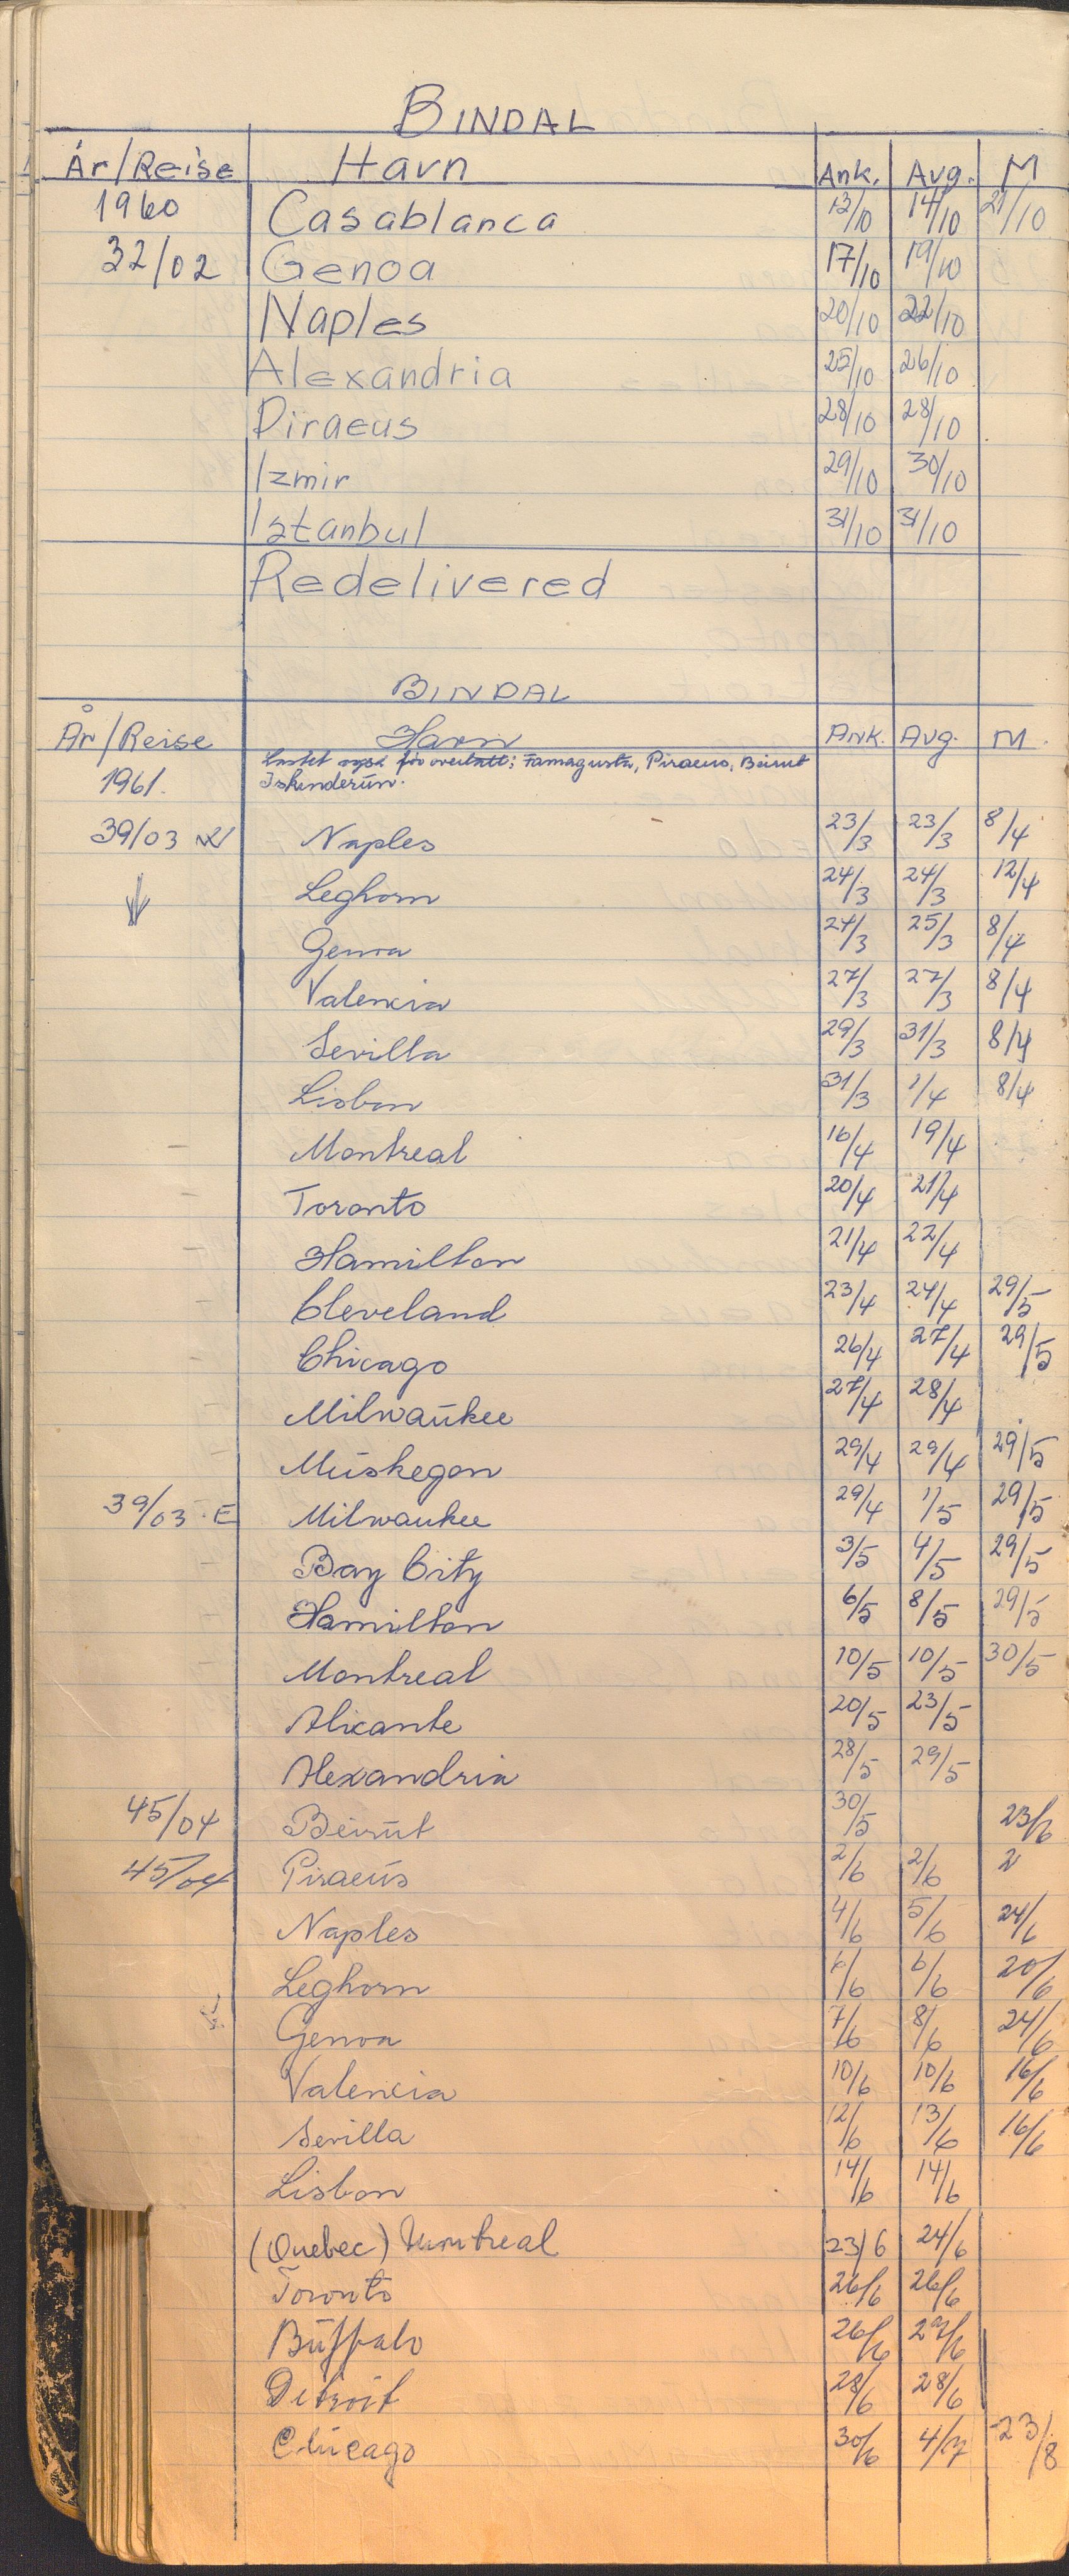 BINDAL
År/Reise Havn Ank. Avg. M
1960 Casablanca 13/10 14/10 21/10
32/02 Genoa 17/10 19/10
Naples 20/10 22/10
Alexandria 25/10 26/10
Piraeus 28/10 28/10
Izmir 29/10 30/10
Istanbul 31/10 31/10
Redelivered
BINDAL
År/Reise Havn Ank. Avg. M
Lastet også før overtatt; Famagusta, Piraeus, Beirut
1961. Iskenderun.
39/03 W Naples 23/3 23/3 8/4
Leghorn 24/3 24/3 12/4
Genoa 24/3 25/3 8/4
Valencia 27/3 27/3 8/4
Sevilla 29/3 31/3 8/4
Lisbon 31/3 1/4 8/4
Montreal 16/4 19/4
Toronto 20/4 21/4
Hamilton 21/4 22/4
Cleveland 23/4 24/4 29/5
Chicago 26/4 27/4 29/5
Milwaukee 27/4 28/4
Muskegon 29/4 29/4 29/5
39/03 E Milwaukee 29/4 1/5 29/5
Bay City 3/5 4/5 29/5
Hamilton 6/5 8/5 29/5
Montreal 10/5 10/5 30/5
Alicante 20/5 23/5
Alexandria 28/5 29/5
45/04 Beirut 30/5 23/6
45/04 Piraeus 2/6 2/6
Naples 4/6 5/6 24/6
Leghorn 6/6 6/6 20/6
Genoa 7/6 8/6 24/6
Valencia 10/6 10/6 16/6
Sevilla 12/6 13/6 16/6
Lisbon 14/6 14/6
(Quebec) Montreal 23/6 24/6
Toronto 26/6 26/6
Buffalo 26/6 27/6
Detroit 28/6 28/6
Chicago 30/6 4/7 23/8